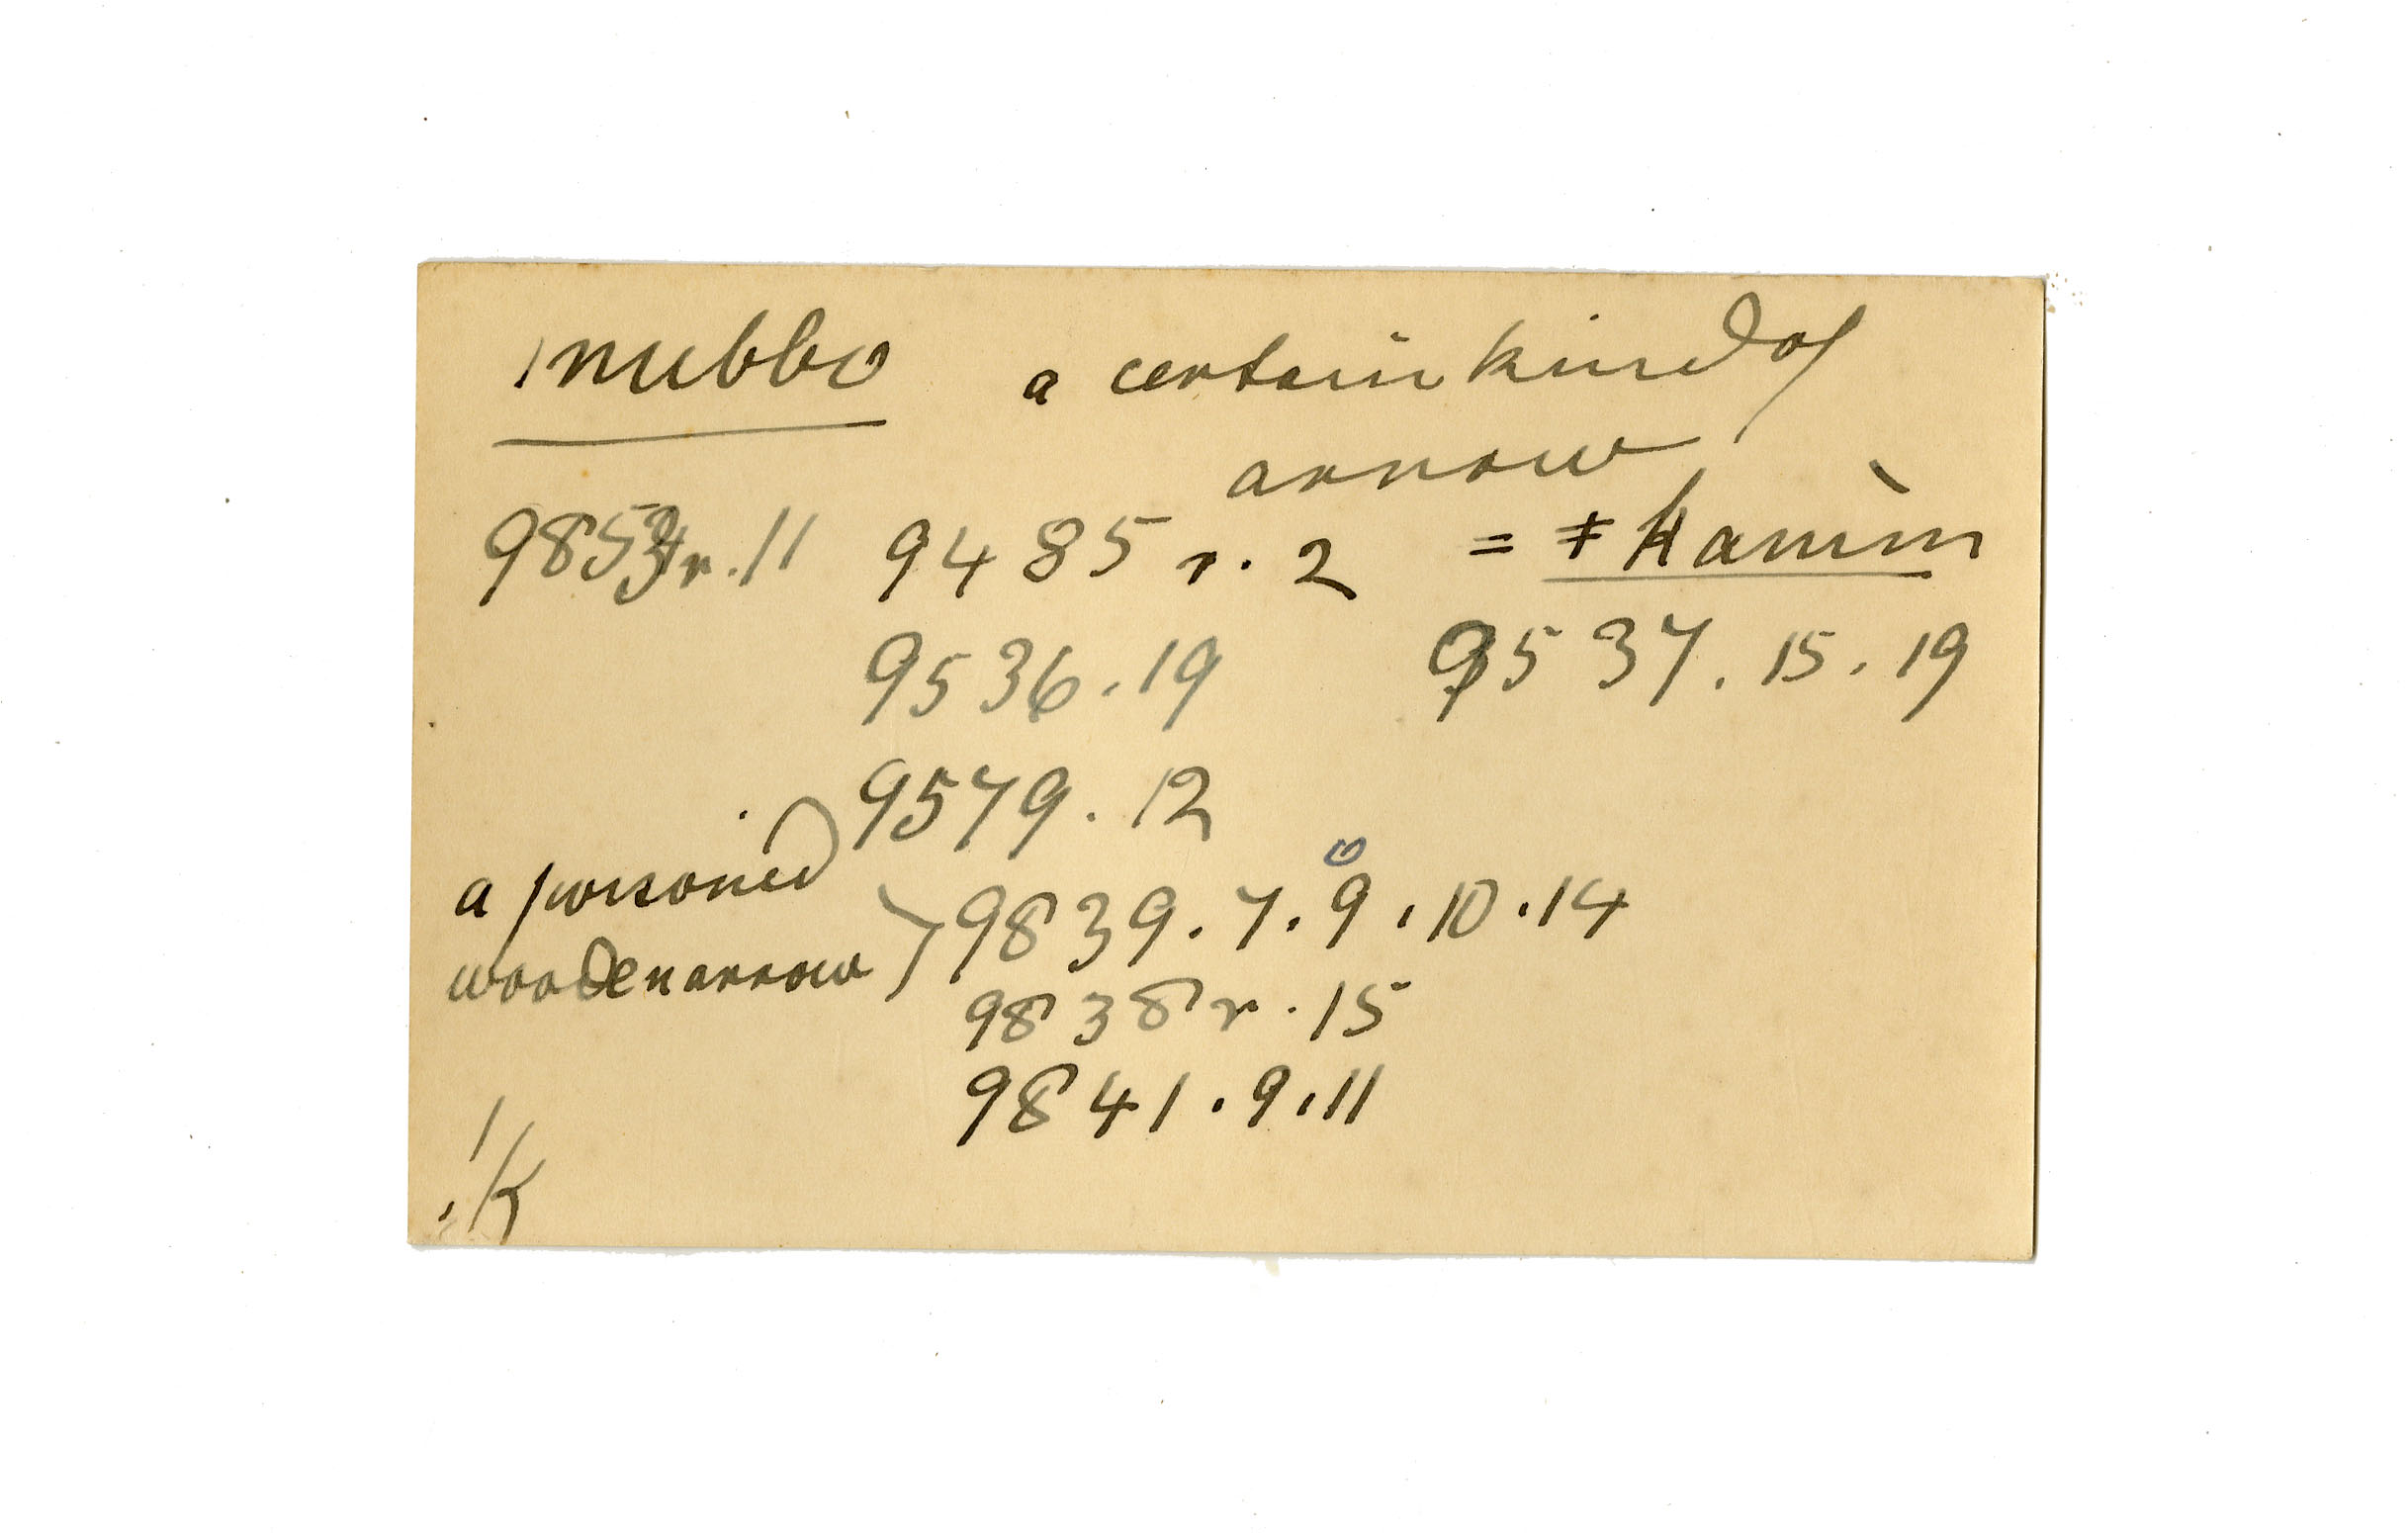 /nubbo a certain kind of
arrow
9485 r. 2 = ǂkanin
9536.19 9537.15.19
9579.12
a poisoned
wooden arrow } 9839.7.9.10.14
9838 r. 15
9841.9.11
/K